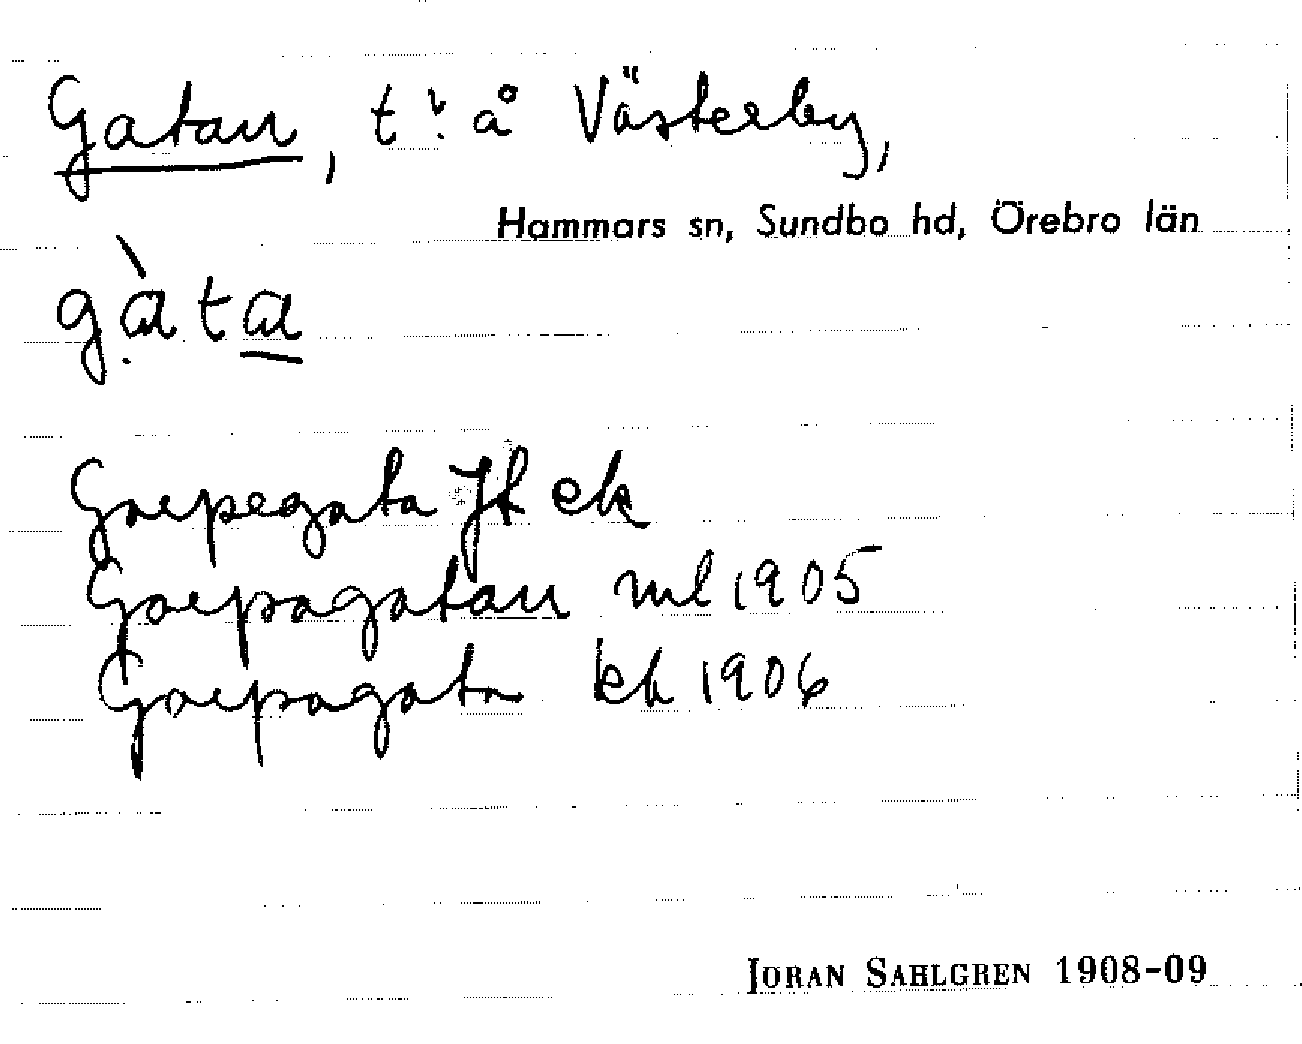 Gatan, tv. å Västerby,
Hammars sn, Sundbo hd, Örebro län
gàta
Gorpegata Jk ek
Gorpagatan ml 1905
Gorpagata kk 1906
JORAN SAHLGREN 1908-09